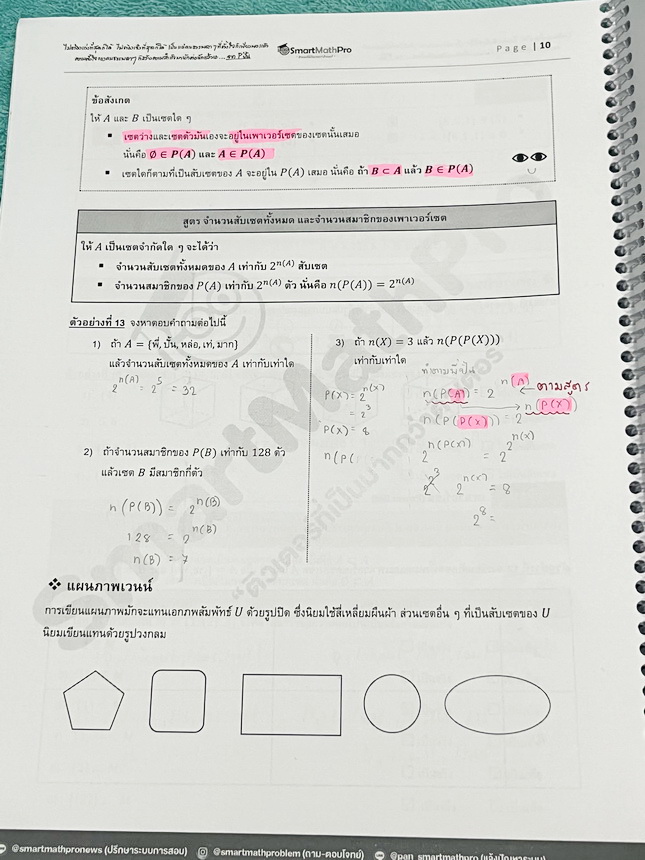 SmartMathPro
Page | 10
ข้อสังเกต
ให้ A และ B เป็นเซตใด ๆ
▪ เซตว่างและเซตตัวมันเองจะอยู่ในเพาเวอร์เซตของเซตนั้นเสมอ
นั่นคือ ∅ ∈ P(A) และ A ∈ P(A)
▪ เซตใดก็ตามที่เป็นสับเซตของ A จะอยู่ใน P(A) เสมอ นั่นคือ ถ้า B ⊂ A แล้ว B ∈ P(A)
สูตร จำนวนสับเซตทั้งหมด และจำนวนสมาชิกของเพาเวอร์เซต
ให้ A เป็นเซตจำกัดใด ๆ จะได้ว่า
▪ จำนวนสับเซตทั้งหมดของ A เท่ากับ 2^{n(A)} สับเซต
▪ จำนวนสมาชิกของ P(A) เท่ากับ 2^{n(A)} ตัว นั่นคือ n(P(A)) = 2^{n(A)}
ตัวอย่างที่ 13 จงหาตอบคำถามต่อไปนี้
1) ถ้า A = {พี่, ปั้น, หล่อ, เท่, มาก}
แล้วจำนวนสับเซตทั้งหมดของ A เท่ากับเท่าใด
2^{n(A)} = 2^5 = 32
2) ถ้าจำนวนสมาชิกของ P(B) เท่ากับ 128 ตัว
แล้วเซต B มีสมาชิกกี่ตัว
n(P(B)) = 2^{n(B)}
128 = 2^{n(B)}
n(B) = 7
3) ถ้า n(X) = 3 แล้ว n(P(P(X)))
เท่ากับเท่าใด
P(X) = 2^{n(X)}
= 2^3
P(X) = 8
n(P(
n(P(A)) = 2^{n(A)} ← ตามสูตร
n(P(P(X))) = 2^{n(P(X))}
2^{n(P(X))} = 2^{2^{n(X)}}
2^3 2^{n(X)} = 8
2^8 =
❖ แผนภาพเวนน์
การเขียนแผนภาพมักจะแทนเอกภพสัมพัทธ์ U ด้วยรูปปิด ซึ่งนิยมใช้สี่เหลี่ยมผืนผ้า ส่วนเซตอื่น ๆ ที่เป็นสับเซตของ U
นิยมเขียนแทนด้วยรูปวงกลม
SmartMathPro
@smartmathpronews (ปรึกษาระบบการสอบ) @smartmathproblem (ถาม-ตอบโจทย์) @pan_smartmathpro (แจ้งปัญหาระบบ)